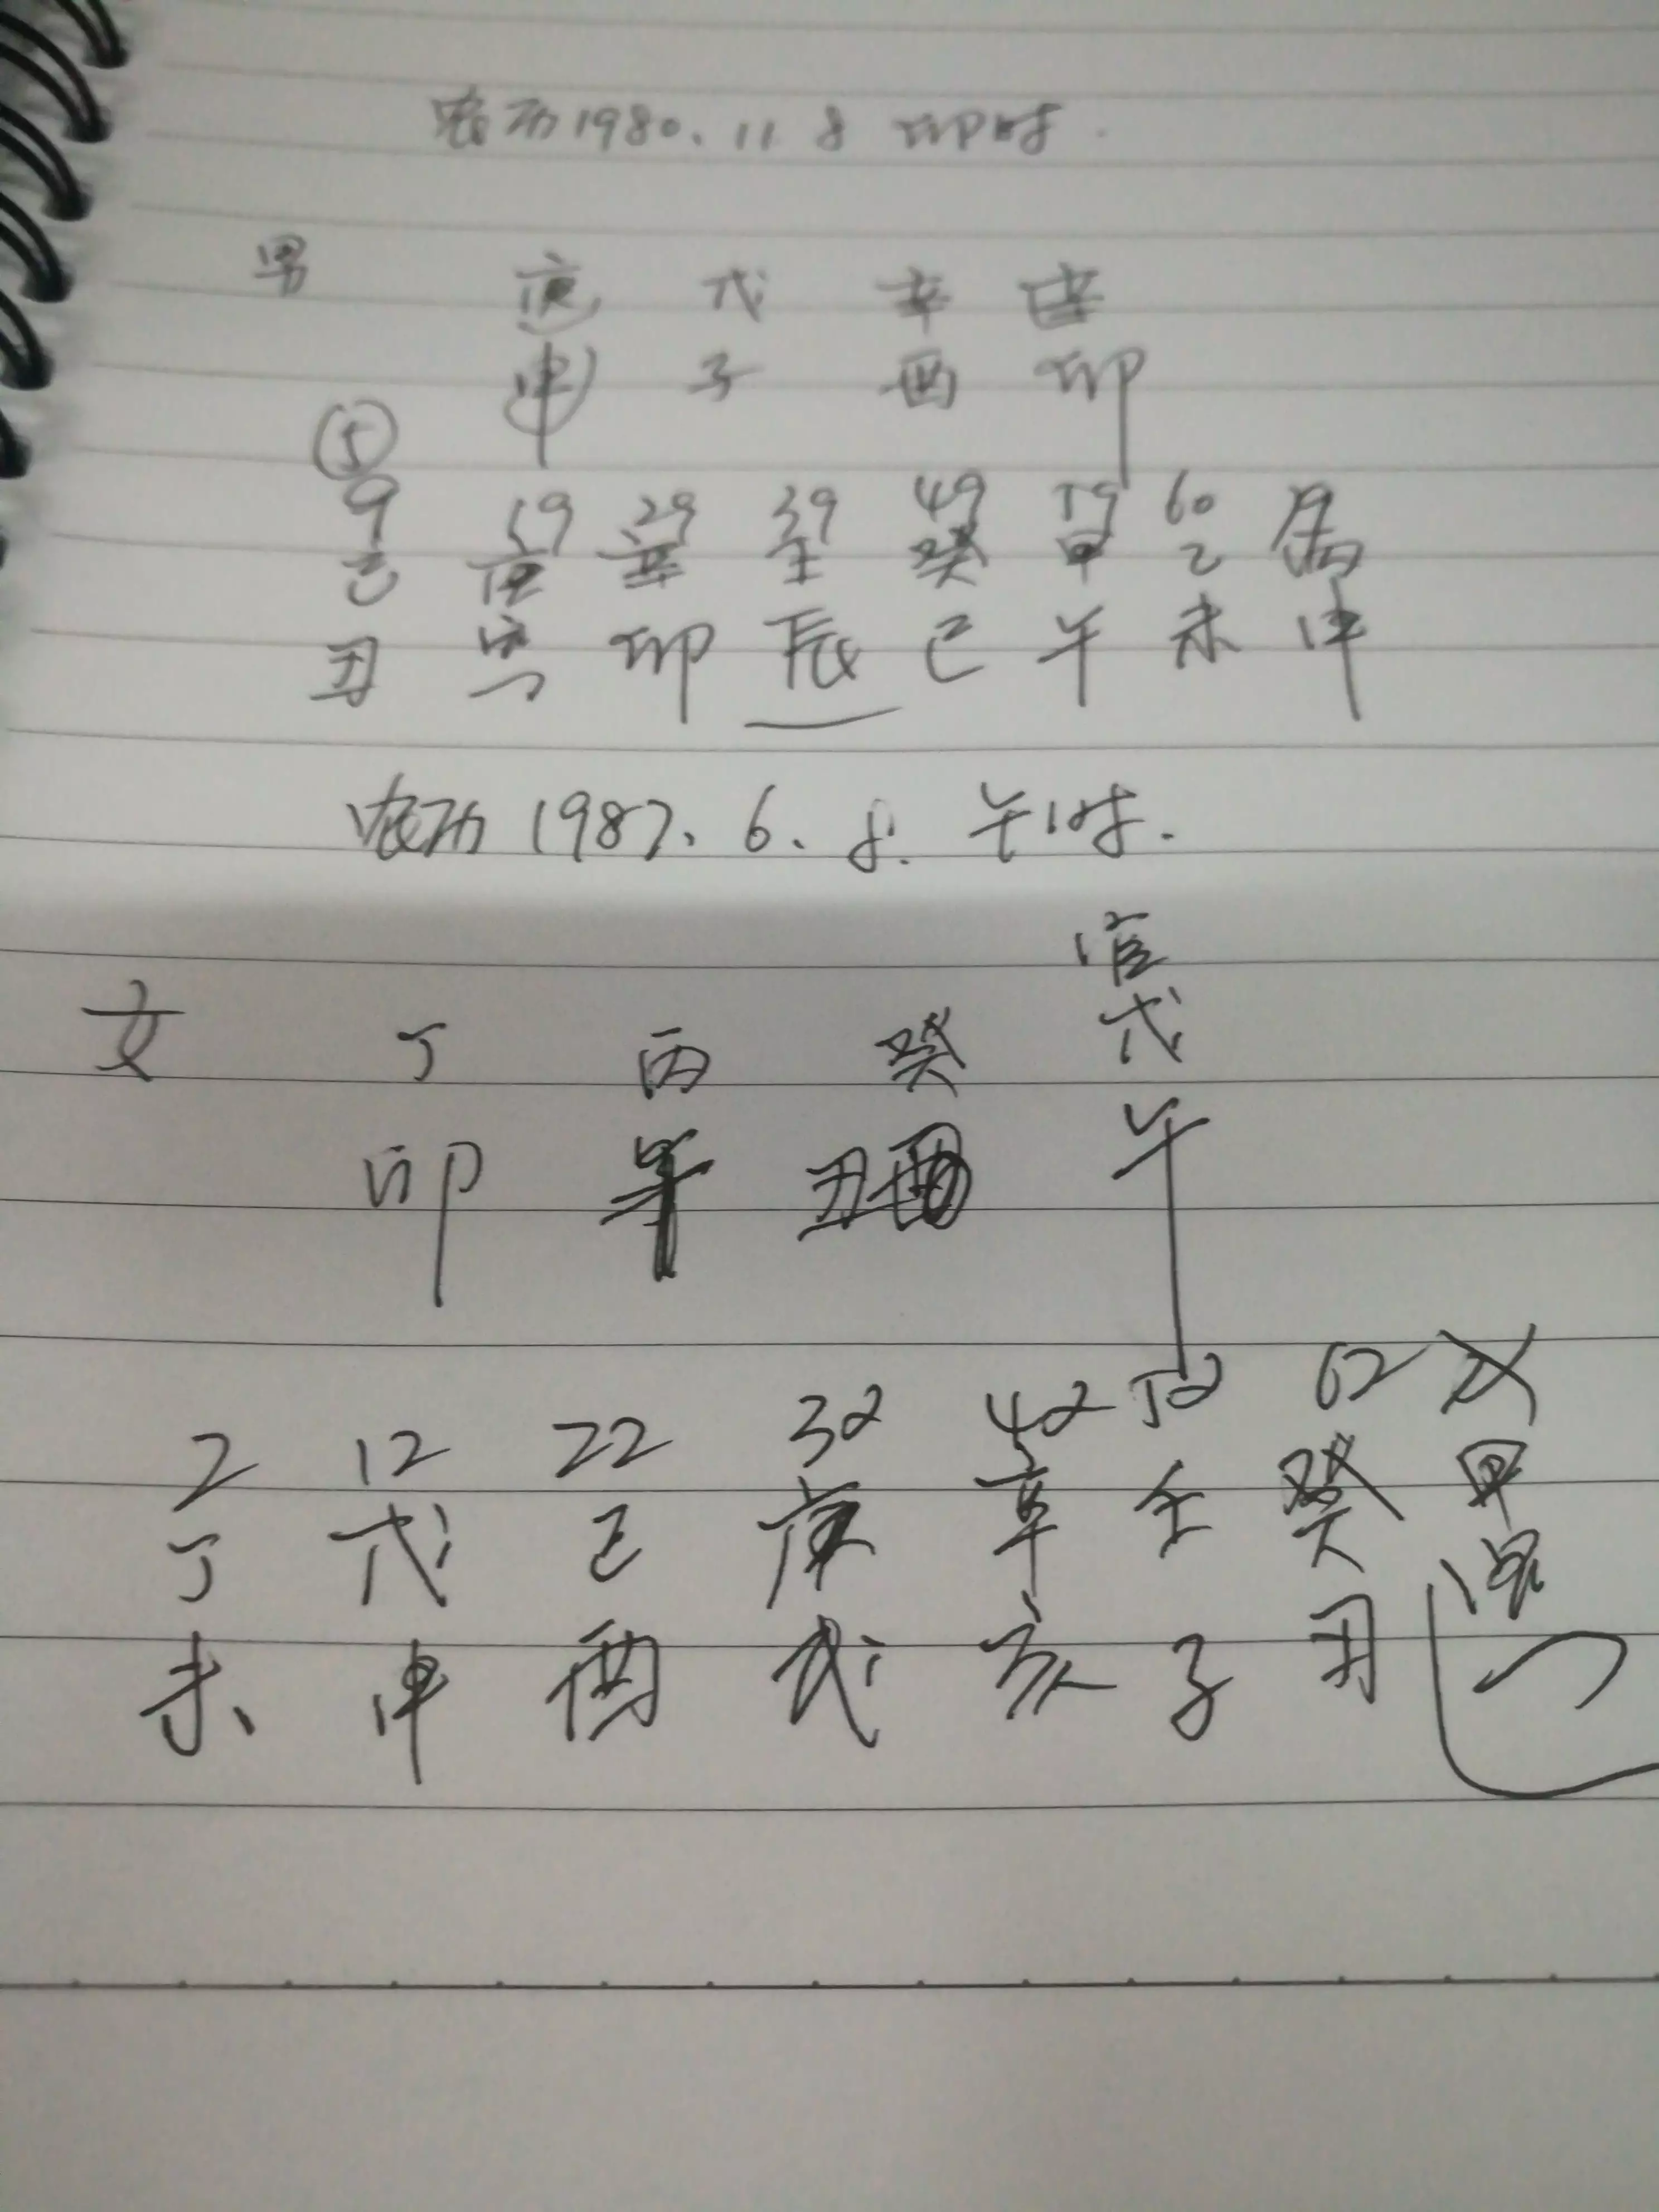 农历1980.11 8 卯时.
男 庚 戊 辛 辛
申 子 酉 卯
⑤
9 19 29 39 49 59 60
己 庚 辛 壬 癸 甲 乙 丙
丑 寅 卯 辰 巳 午 未 申
农历1987.6.8.午时.
官
女 丁 丙 癸 戊
卯 丑 午
2 12 22 32 42 52 62
丁 戊 己 庚 辛 壬 癸 甲
未 申 酉 戌 亥 子 丑